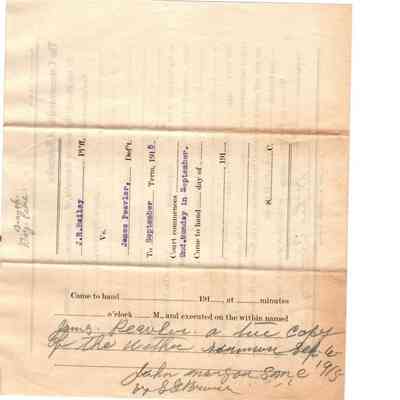 J.R.Bailey Pl'ff.
Vs.
James Peavler, Def't.
To September Term, 1915
Court commences
2nd.Monday in September.
Came to hand day of
191
S. C.
Came to hand 191 , at minutes
o'clock M., and executed on the within named
James Peavler a true copy
of the within summon Sep 6
1915
John morgan
by